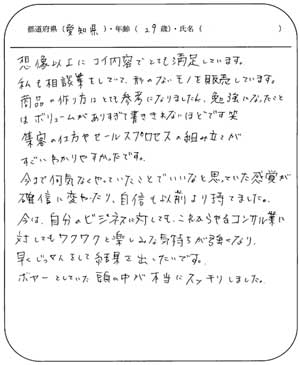 都道府県(愛知県)・年齢(29歳)・氏名(　　　)
想像以上にコイ内容でとても満足しています。
私も相談業をしていて、形のないモノを販売しています。
商品の作り方はとても参考になりましたし、勉強になったこと
はボリュームがありすぎて書ききれないほどです笑
集客の仕方やセールスプロセスの組み立てが
すごいわかりやすかったです。
今まで何気なくやっていたことでいいなと思っていた感覚が
確信に変わったり、自信も以前より持てました。
今は、自分のビジネスに対しても、これからやるコンサル業に
対してもワクワクと楽しみな気持ちが強くなり、
早くじっせんをして結果を出したいです。
ボヤーとしていた頭の中が本当にスッキリしました。